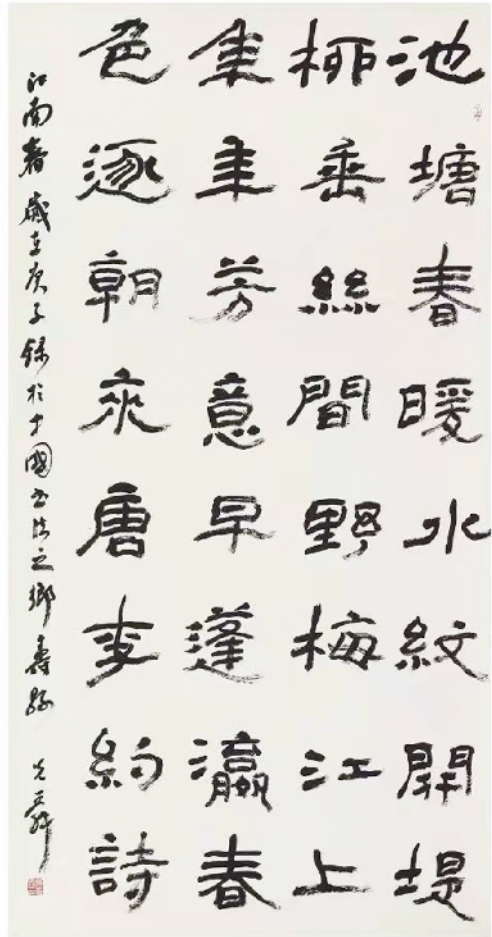 池塘春暖水紋開堤
柳垂絲間野梅江上
年年芳意早蓬瀛春
色逐朝來唐李約詩
江南春 歲在庚子錄於中國书法之鄉壽縣